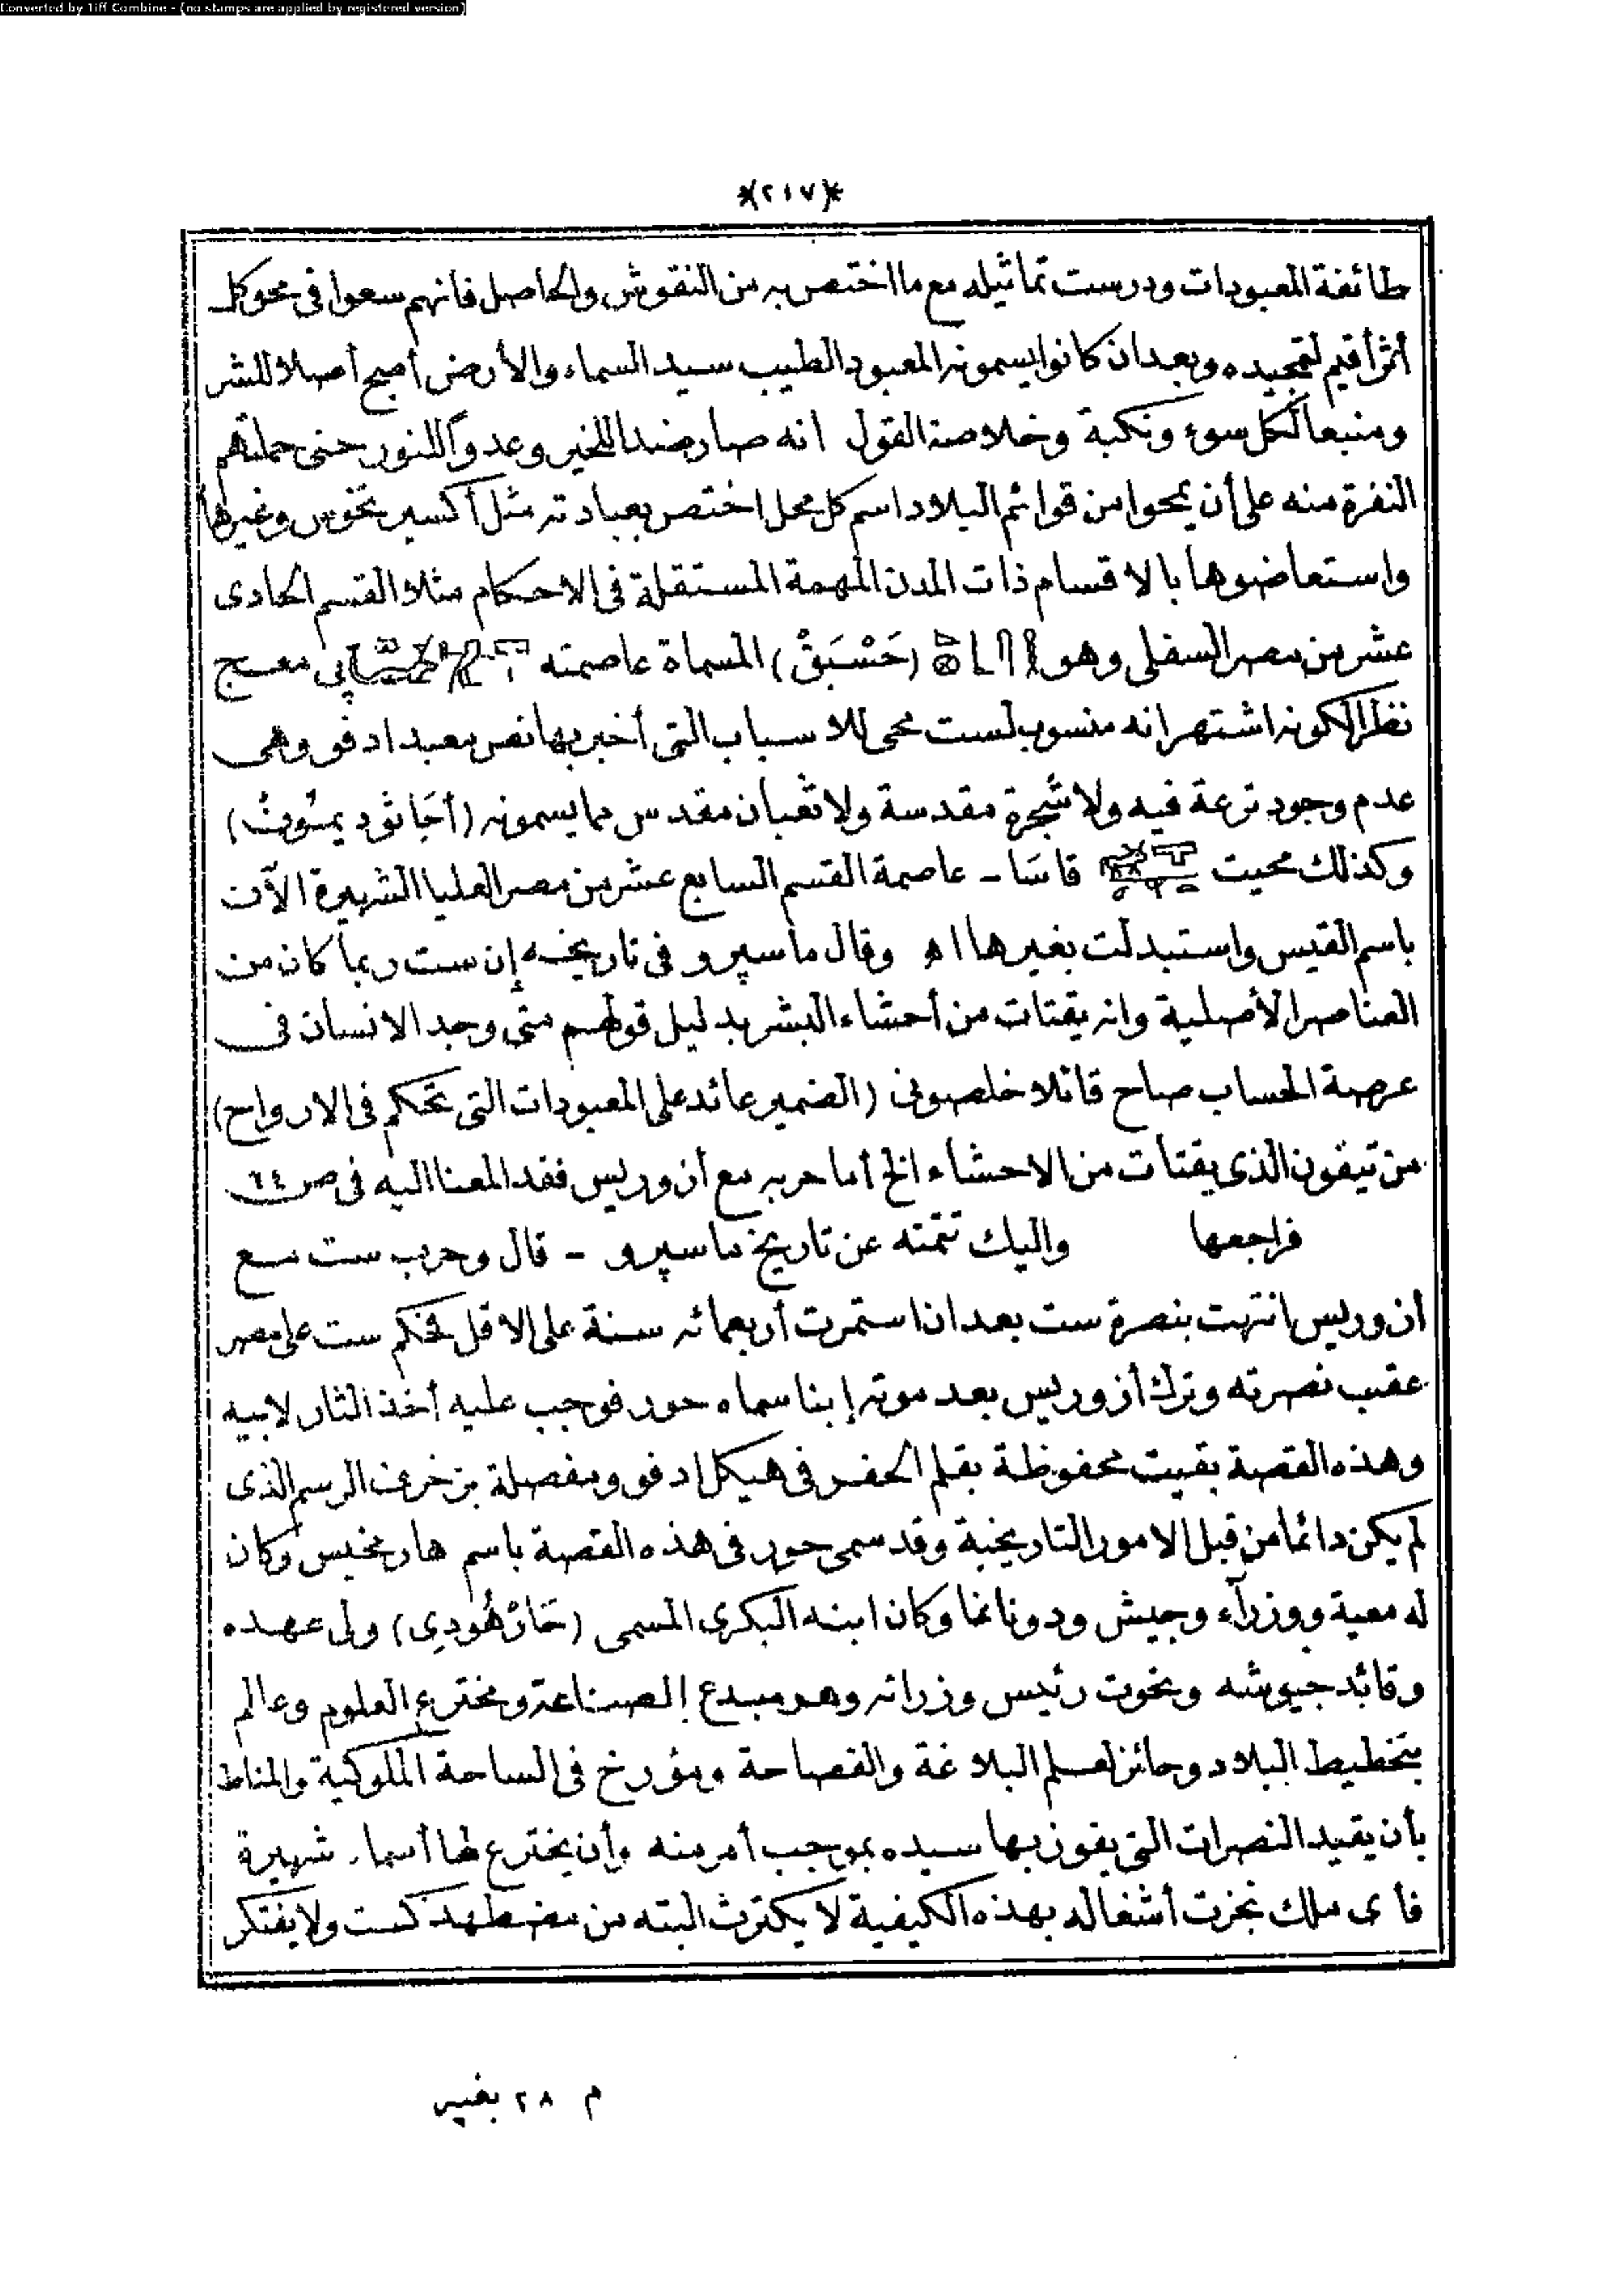 Converted by Tiff Combine - (no stamps are applied by registered version)
*(٢١٧)*
طائفة المعبودات ودرست تماثيله مع ما اختص به من النقوش والحاصل فانهم سعوا فى محو كل
أثر أقيم لتمجيده وبعد ان كانوا يسمونه المعبود الطيب سيد السماء والأرض أصبح أصلا للشر
ومنبعا لكل سوء ونكبة وخلاصة القول انه صار ضدا للخير وعدوّا للنور حتى حملتهم
النفرة منه على أن يمحوا من قوائم البلاد اسم كل محل اختص بعبادته مثل أكسيرنخوس وغيرها
واستعاضوها بالاقسام ذات المدن المهمة المستقلة فى الاحكام مثلا القسم الحادى
عشر من مصر السفلى وهو (حَسْبَقْ) المسماة عاصمته أى معـج
نظرا لكونه اشتهر انه منسوب لست محى للاسباب التى أخبر بها نص معبد ادفو وهى
عدم وجود ترعة فيه ولا شجرة مقدسة ولا ثعبان مقدس مما يسمونه (أجاثود يمنوث)
وكذلك محيت قاسَا - عاصمة القسم السابع عشر من مصر العليا الشهيرة الآن
باسم القيس واستبدلت بغيرها اه وقال ماسپرو فى تاريخه إن ست ربما كان من
العناصر الأصلية وانه يقتات من أحشاء البشر بدليل قولهم متى وجد الانسان فى
عرصة الحساب صاح قائلا خلصونى (الضمير عائد على المعبودات التى تحكم فى الارواح)
من تيفون الذى يقتات من الاحشاء الخ أما حربه مع أزوريس فقد المعنا اليه فى ص ٦٤
فراجعها واليك تتمته عن تاريخ ماسپرو - قال وحرب ست مع
أزوريس انتهت بنصرة ست بعد ان استمرت أربعمائه سنة على الاقل فحكم ست على مصر
عقب نصرته وترك أزوريس بعد موته إبنا سماه حور فوجب عليه أخذ الثار لابيه
وهذه القصة بقيت محفوظة بقلم الحفر فى هيكل ادفو ومفصلة بزخرف الرسم الذى
لم يكن دائما من قبل الامور التاريخية وقد سمى حور فى هذه القصة باسم هارمخيس وكان
له معية ووزرآء وجيش ودونانما وكان ابنه البكرى المسمى (حَارْهُودِى) ولى عهده
وقائد جيوشه وتحوت رئيس وزرائه وهو مبدع الصناعة ومخترع العلوم وعالم
بتخطيط البلاد وحائز لعلم البلاغة والفصاحة ومؤرخ فى الساحة الملوكية والمناط
بأن يقيد النصرات التى يفوز بها سيده بموجب أمر منه وأن يخترع لها أسماء شهيرة
فأى ملك نجزت أشغاله بهذه الكيفية لا يكترث البته من مضطهد كست ولا يفتكر
م ٢٨ بغيه